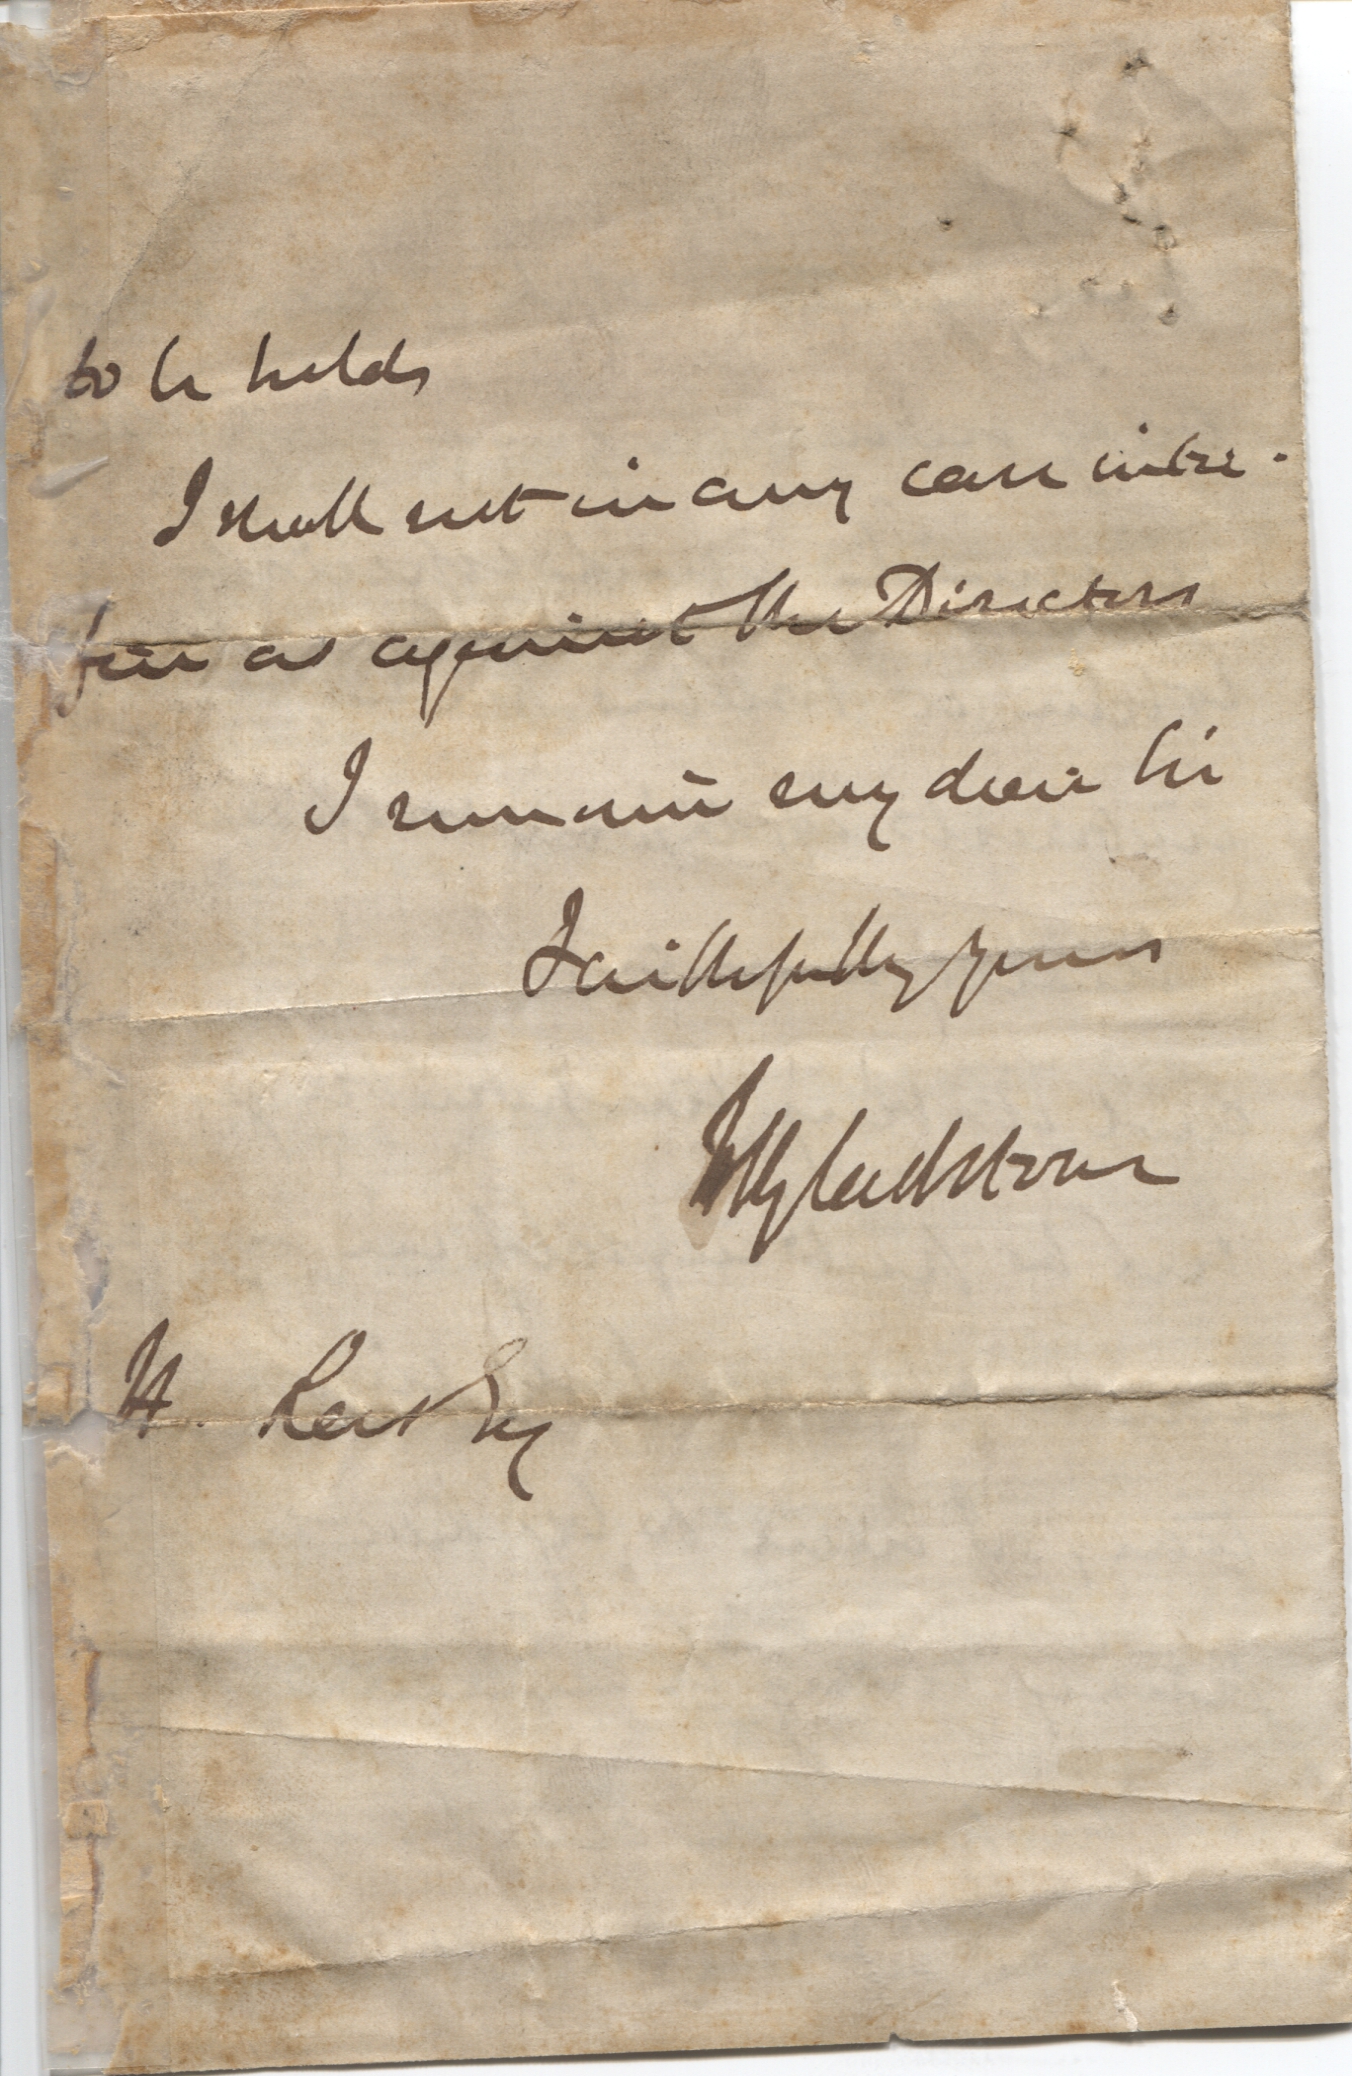 to be held
I shall not in any case inter-
fere as against the Directors
I remain my dear Sir
Faithfully yours
WGladstone
H. Esq